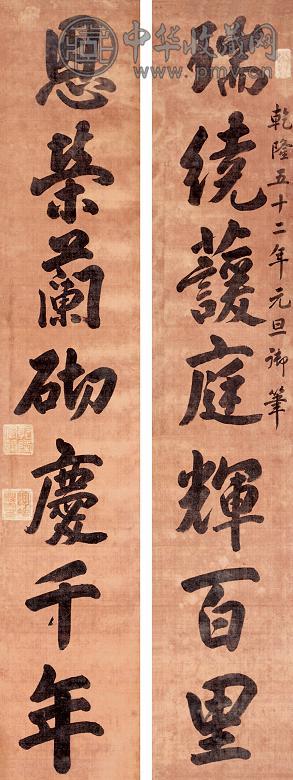 瑞繞蘐庭輝百里
乾隆五十二年元旦御筆
恩榮蘭砌慶千年
中华收藏网
www.pmvv.cn